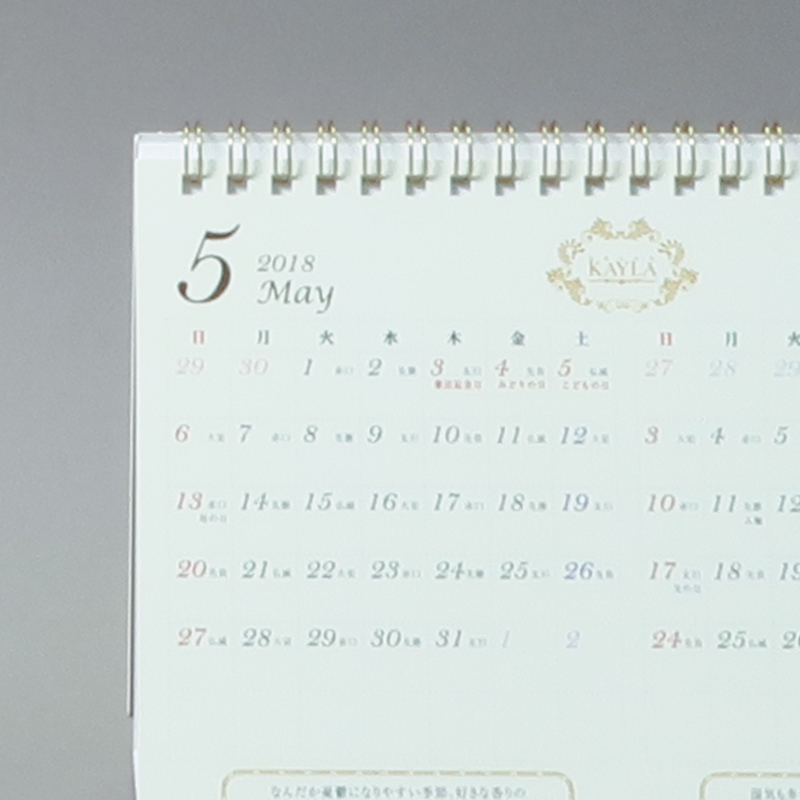 5
2018
May
KAYLA
日 月 火 水 木 金 土
29 30 1 赤口 2 先勝 3 友引 4 先負 5 仏滅
憲法記念日 みどりの日 こどもの日
6 大安 7 赤口 8 先勝 9 友引 10 先負 11 仏滅 12 大安
13 赤口 14 先勝 15 仏滅 16 大安 17 赤口 18 先勝 19 友引
母の日
20 先負 21 仏滅 22 大安 23 赤口 24 先勝 25 友引 26 先負
27 仏滅 28 大安 29 赤口 30 先勝 31 友引 1 2
なんだか憂鬱になりやすい季節、好きな香りの
日 月 火
27 28 29
3 大安 4 赤口 5
10 赤口 11 先勝 12
入梅
17 友引 18 先負 19
父の日
24 先負 25 仏滅 26
湿気も多